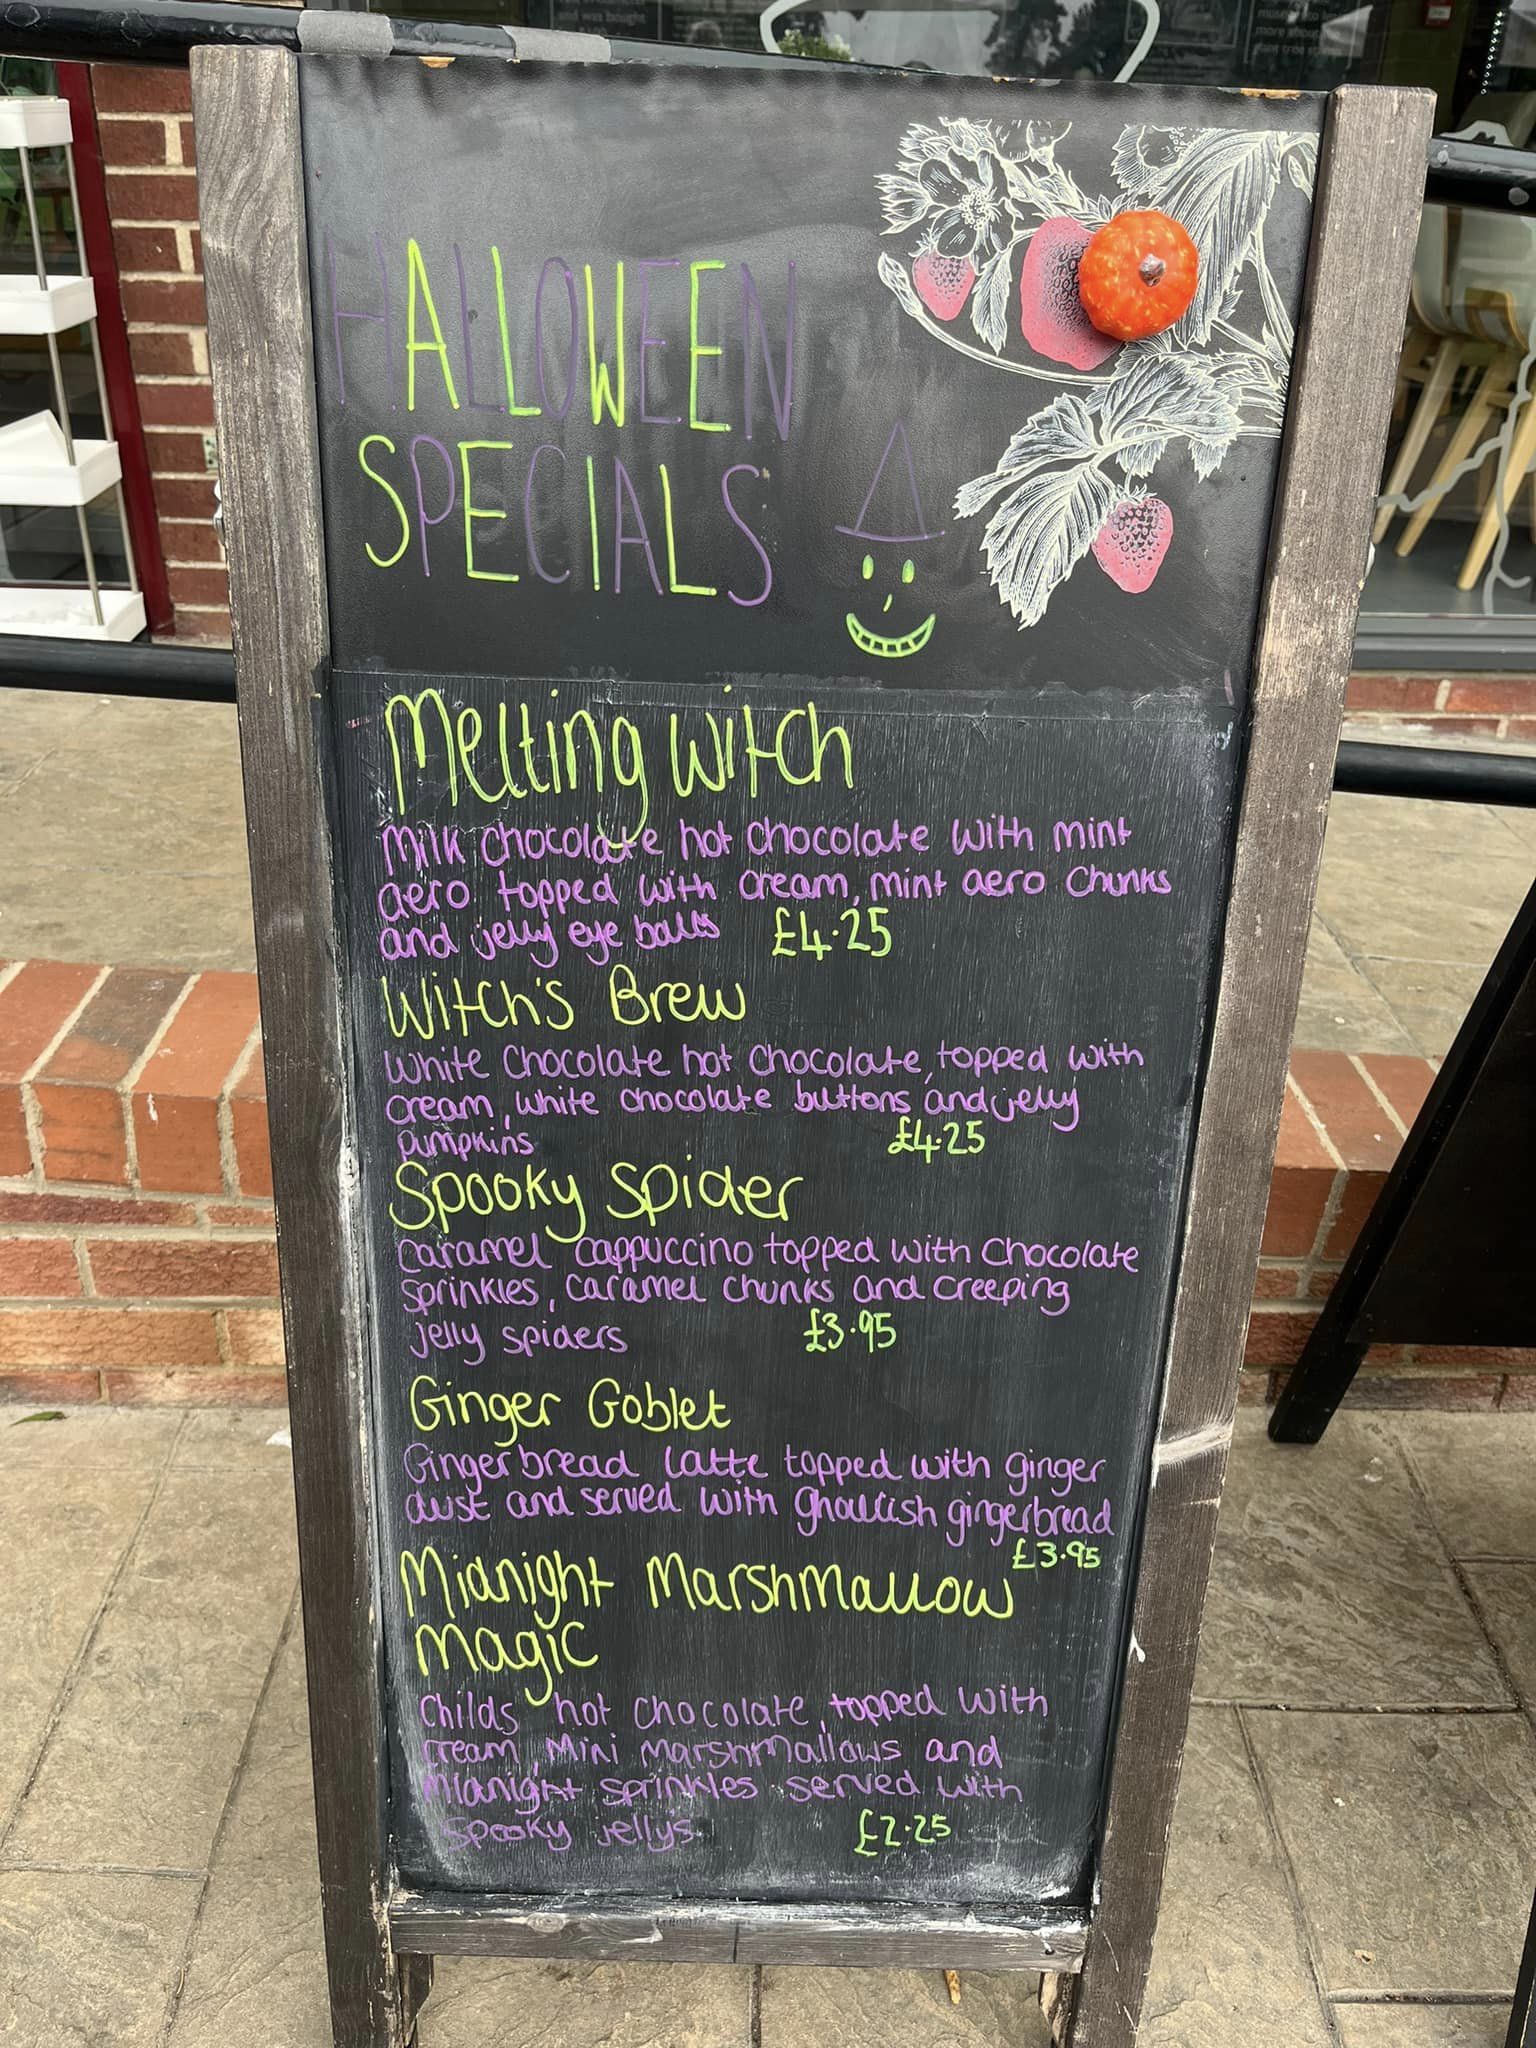 and was bought
more about
HALLOWEEN
SPECIALS
Melting Witch
Milk chocolate hot chocolate with mint
aero topped with cream, mint aero chunks
and jelly eye balls £4.25
Witch's Brew
White chocolate hot chocolate, topped with
cream, white chocolate buttons and jelly
pumpkins £4.25
Spooky Spider
Caramel cappuccino topped with chocolate
sprinkles, caramel chunks and creeping
jelly spiders £3.95
Ginger Goblet
Gingerbread latte topped with ginger
dust and served with ghoulish gingerbread
£3.95
Midnight Marshmallow
Magic
Childs hot chocolate, topped with
cream, mini marshmallows and
midnight sprinkles served with
spooky jellys £2.25